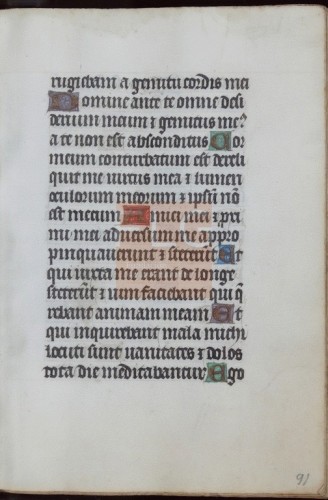 rugiebam a gemitu cordis mei
Domine ante te omne desi
derium meum et gemitus me9
a te non est absconditus Cor
meum conturbatum est dereli
quit me virtus mea et lumen
oculorum meorum et ipsum nō
est mecum Amici mei et pxi
mi mei adversum me appro
pinquaverunt et steterūt Et
qui iuxta me erant de longe
steterūt et vim faciebant qui q̄
rebant animam meam Et
qui inquirebant mala michi
locuti sunt vanitates et dolos
tota die meditabantur Ego
91